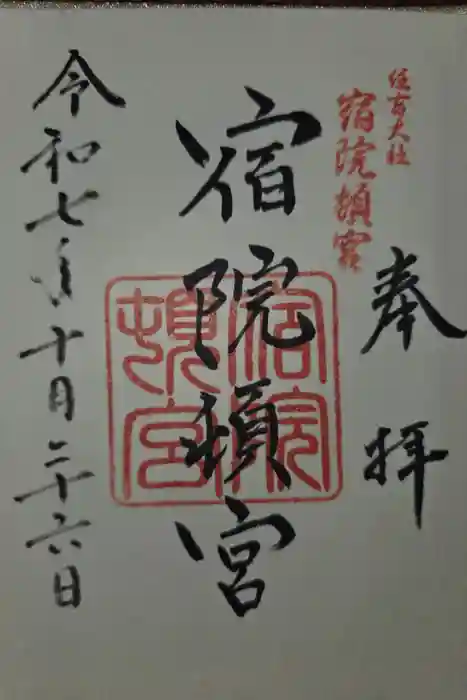 住吉大社
宿院頓宮
奉拝
宿院頓宮
宿院
頓宮
令和七年十月二十六日